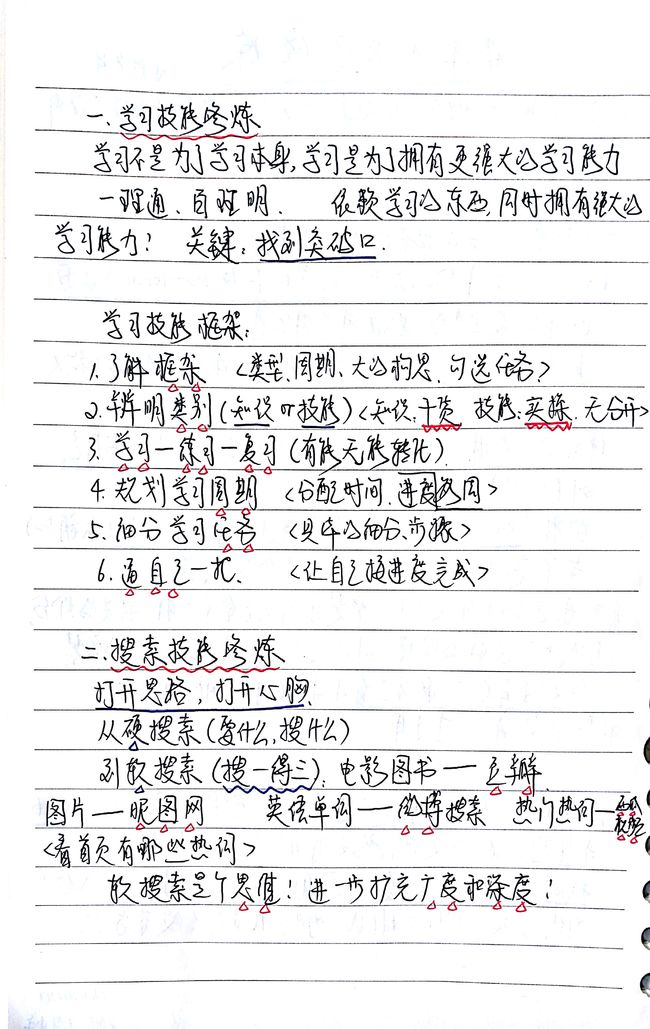 一.学习技能修炼
学习不是为了学习本身,学习是为了拥有更强大的学习能力
一理通、百理明. 依赖学习的东西,同时拥有强大的
学习能力? 关键:找到突破口.
学习技能框架:
1.了解框架 <类型、周期、大的构思、勾选任务>
2.辨明类别(知识or技能)<知识:干货 技能:实操 无分开>
3.学习一练习一复习(有能无能转化)
4.规划学习周期 <分配时间、进度>
5.细分学习任务 <具体的细分、步骤>
6.逼自己一把. <让自己按进度完成>
二.搜索技能修炼
打开思路,打开心胸.
从硬搜索(要什么,搜什么)
到软搜索(搜一得三).电影图书——豆瓣
图片——昵图网 英语单词——微博搜索 热门热词—
<看首页有哪些热词>
软搜索是个思维!进一步扩充广度和深度!